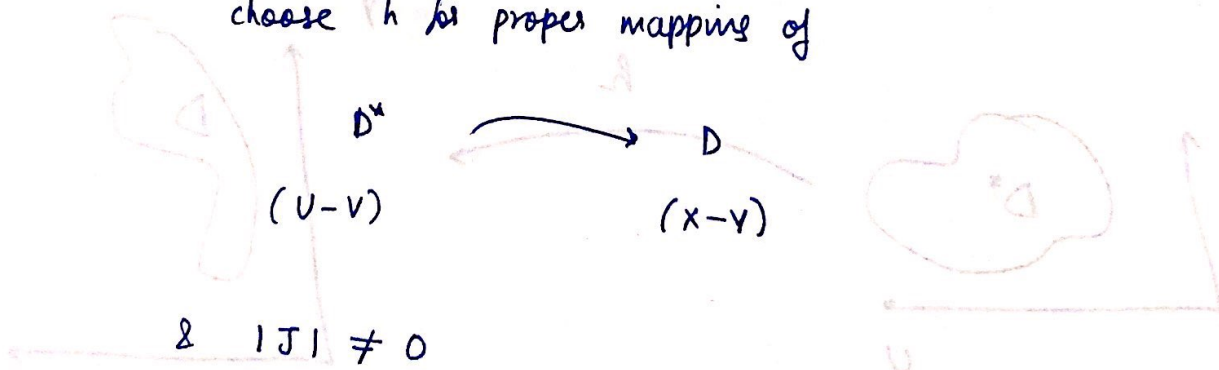 choose h for proper mapping of
D* D
(U-V) (X-Y)
& |J| ≠ 0